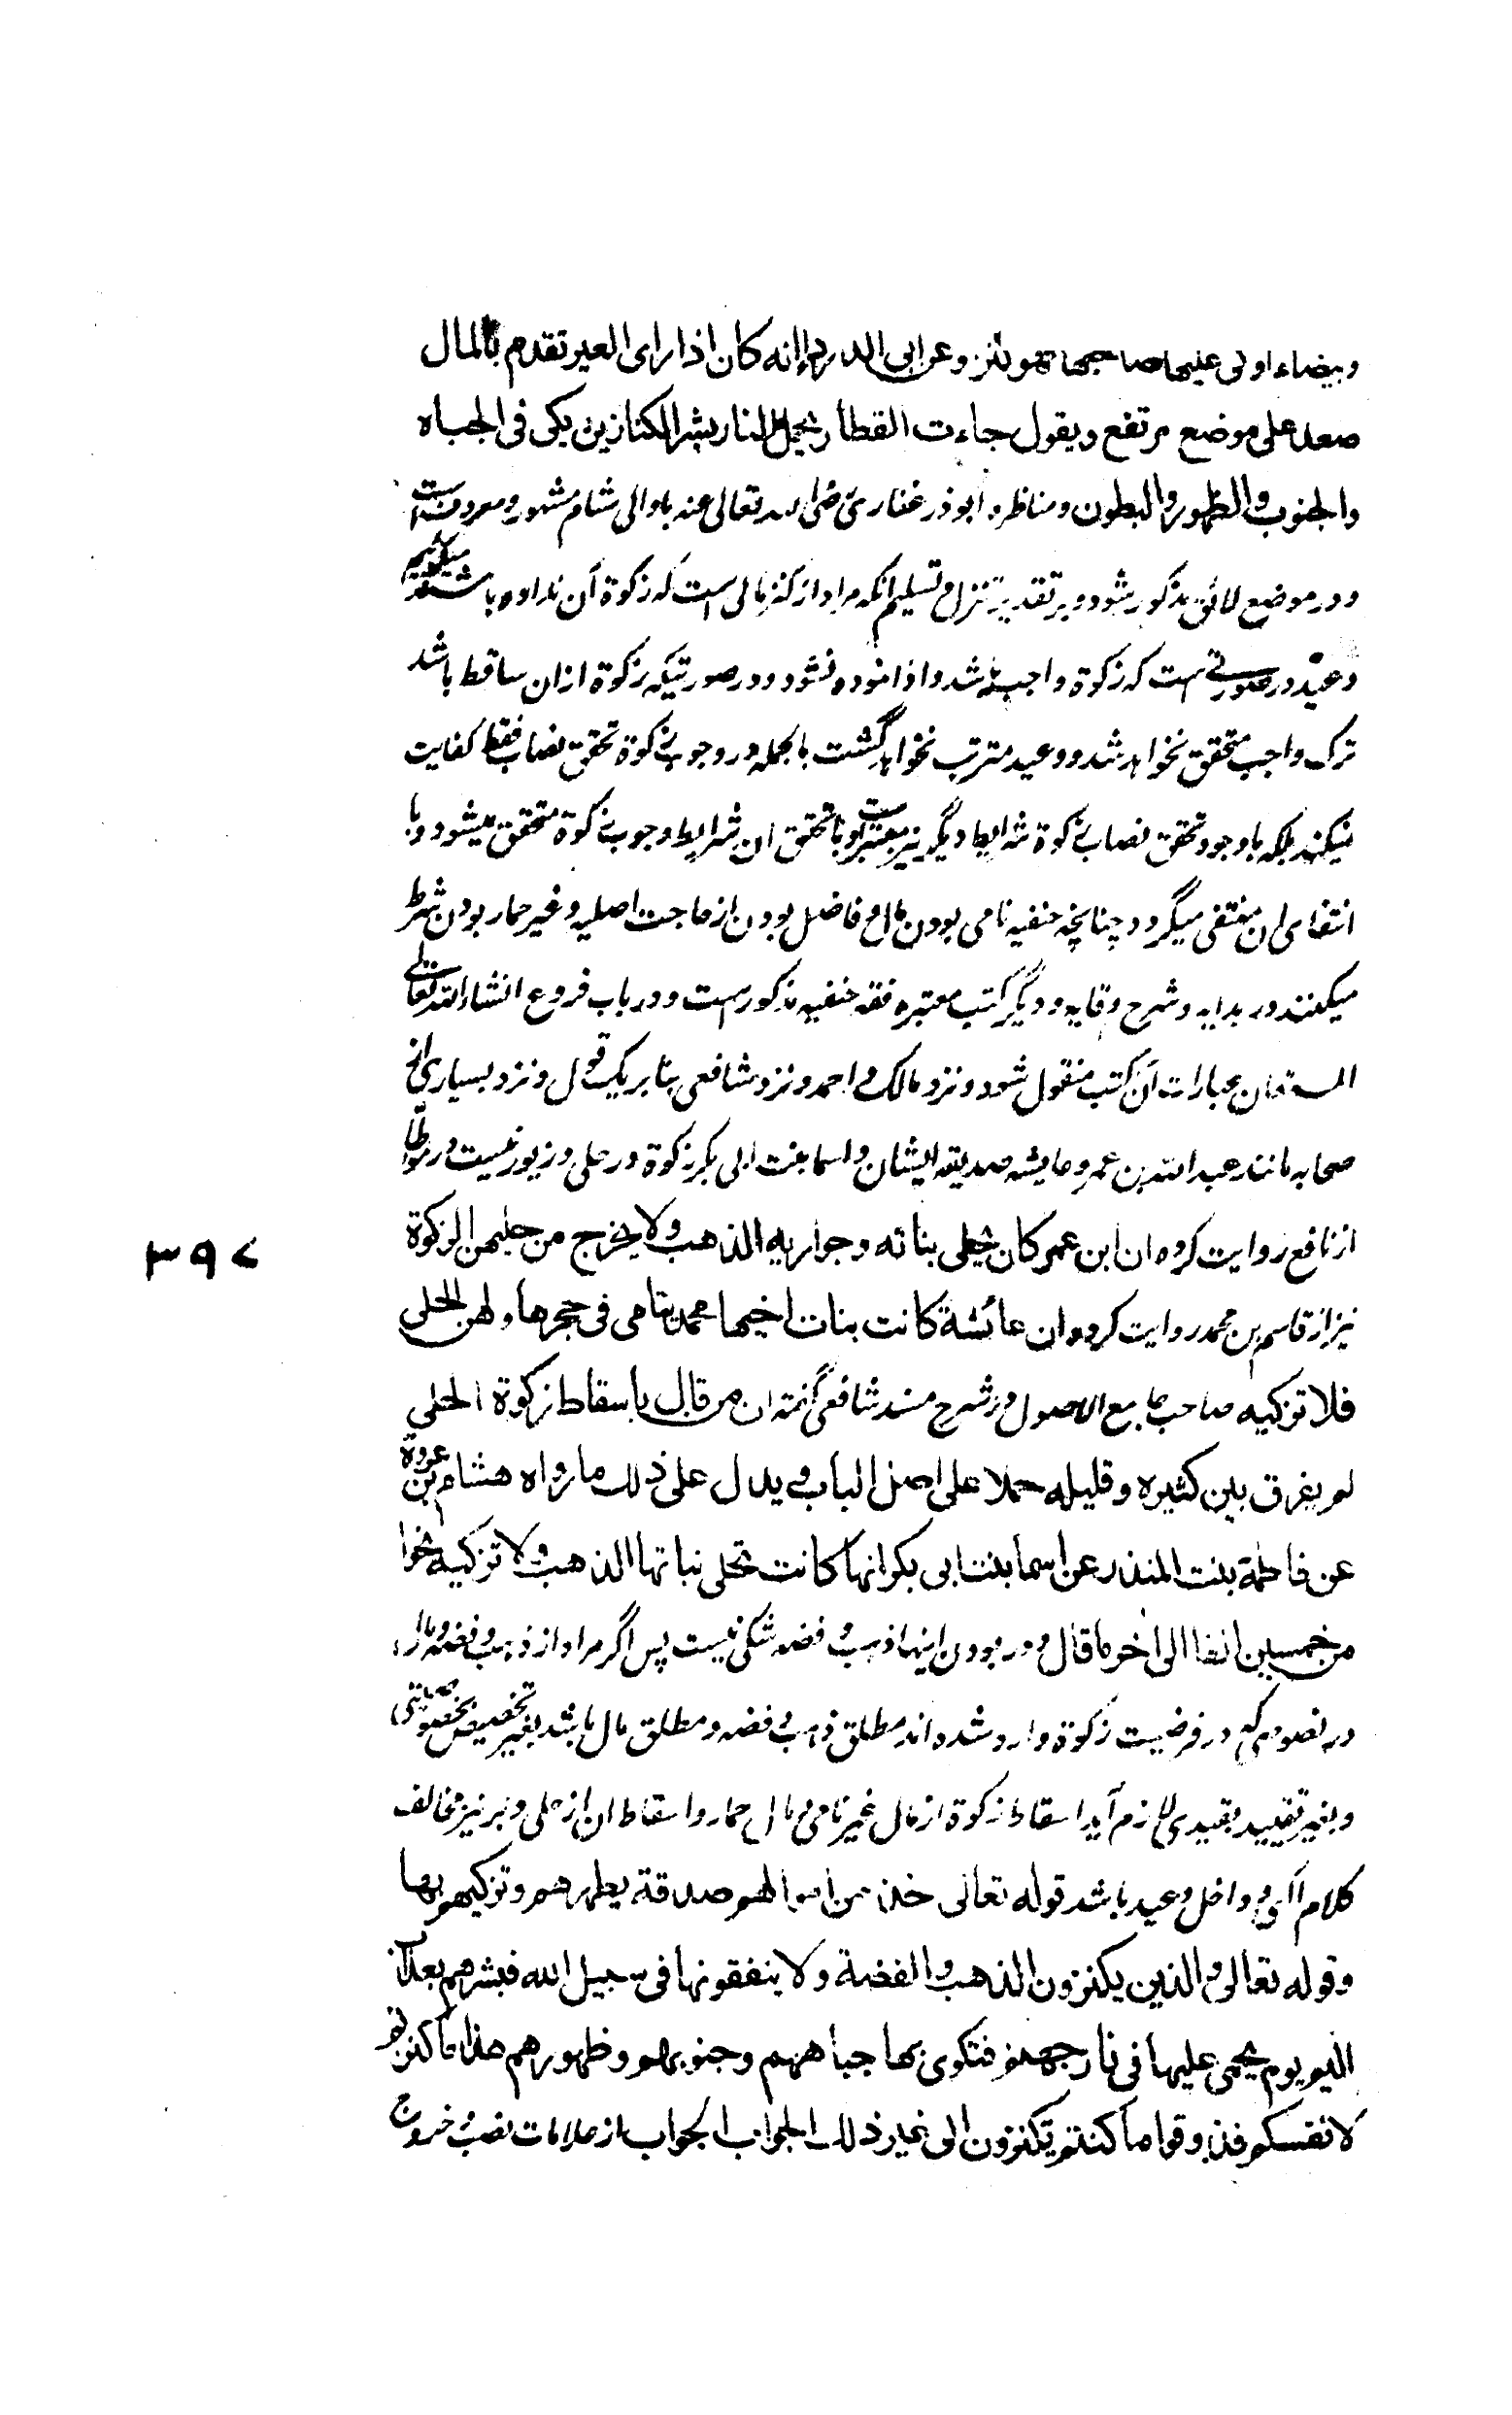 وبیضاء اوکی علیها صاحبها فهو کنز وعن ابی الدرداء انه کان اذا رای العیر تقدم بالمال
صعد علی موضع مرتفع ویقول جاءت القطار یحمل النار بشر الکنازین بکی فی الجباه
والجنوب والظهور والبطون ومناظره ابوذر غفاری رضی الله تعالی عنه با والی شام مشهور ومعروفست
و در موضع لائق مذکور شود و بر تقدیر تنزل و تسلیم انکه مراد از کنز مالی است که زکوة آن نداده باشند میگوییم
وعید در صورتی است که زکوة واجب باشد و ادا نموده نشود و در صورتیکه زکوة ازان ساقط باشد
ترک واجب متحقق نخواهد شد و وعید مترتب نخواهد گشت بالجمله در وجوب زکوة تحقق نصاب فقط کفایت
نمیکند بلکه با وجود تحقق نصاب زکوة شرایط دیگر نیز معتبر است و با تحقق ان شرایط وجوب زکوة متحقق میشود و با
انتفای ان منتفی میگردد چنانچه حنفیه نامی بودن مال و فاضل بودن از حاجت اصلیه و غیر حمار بودن شرط
میکنند در هدایه و شرح وقایه و دیگر کتب معتبره فقه حنفیه مذکور است و در باب فروع انشاء الله تعالی
المستعان عبارات آن کتب منقول شود و نزد مالک و احمد و نزد شافعی بنا بر یک قول و نزد بسیاری از
صحابه مانند عبد الله بن عمر و عایشه صدیقه ایشان و اسما بنت ابی بکر زکوة در حلی و زیور نیست در موطا
از نافع روایت کرده ان ابن عمر کان یحلی بناته وجواریه الذهب ولا یخرج من حلیهن الزکوة
نیز از قاسم بن محمد روایت کرده ان عائشة کانت بنات اخیها محمد یتامی فی حجرها ولهن الحلی
فلا تزکیه صاحب جامع الاصول در شرح مسند شافعی گفته ان من قال باسقاط زکوة الحلی
لم یفرق بین کثیره وقلیله حملا علی اصل الباب ویدل علی ذلک ما رواه هشام بن عروة
عن فاطمة بنت المنذر عن اسما بنت ابی بکر انها کانت تحلی بناتها الذهب ولا تزکیه نحوا
من خمسین الفا الی اخر ما قال و در بودن اینها ذهب و فضه شکی نیست پس اگر مراد از ذهب و فضه و مال
در نصوصی که در فرضیت زکوة وارد شده اند مطلق ذهب و فضه و مطلق مال باشد بغیر تخصیص بخصوصیتی
و بغیر تقیید بقیدی لازم آید اسقاط زکوة از مال غیر نامی و مال حمار و اسقاط ان از حلی و نیز مخالف
کلام الهی و داخل وعید باشد قوله تعالی خذ من اموالهم صدقة یطهرهم وتزکیهم بها
وقوله تعالی والذین یکنزون الذهب والفضة ولا ینفقونها فی سبیل الله فبشرهم بعذاب
الیم یوم یحمی علیها فی نار جهنم فتکوی بها جباههم وجنوبهم وظهورهم هذا ما کنزتم
لانفسکم فذوقوا ما کنتم تکنزون الی غیر ذلک الجواب الجواب از علامات نصب و خروج
۳۹۷